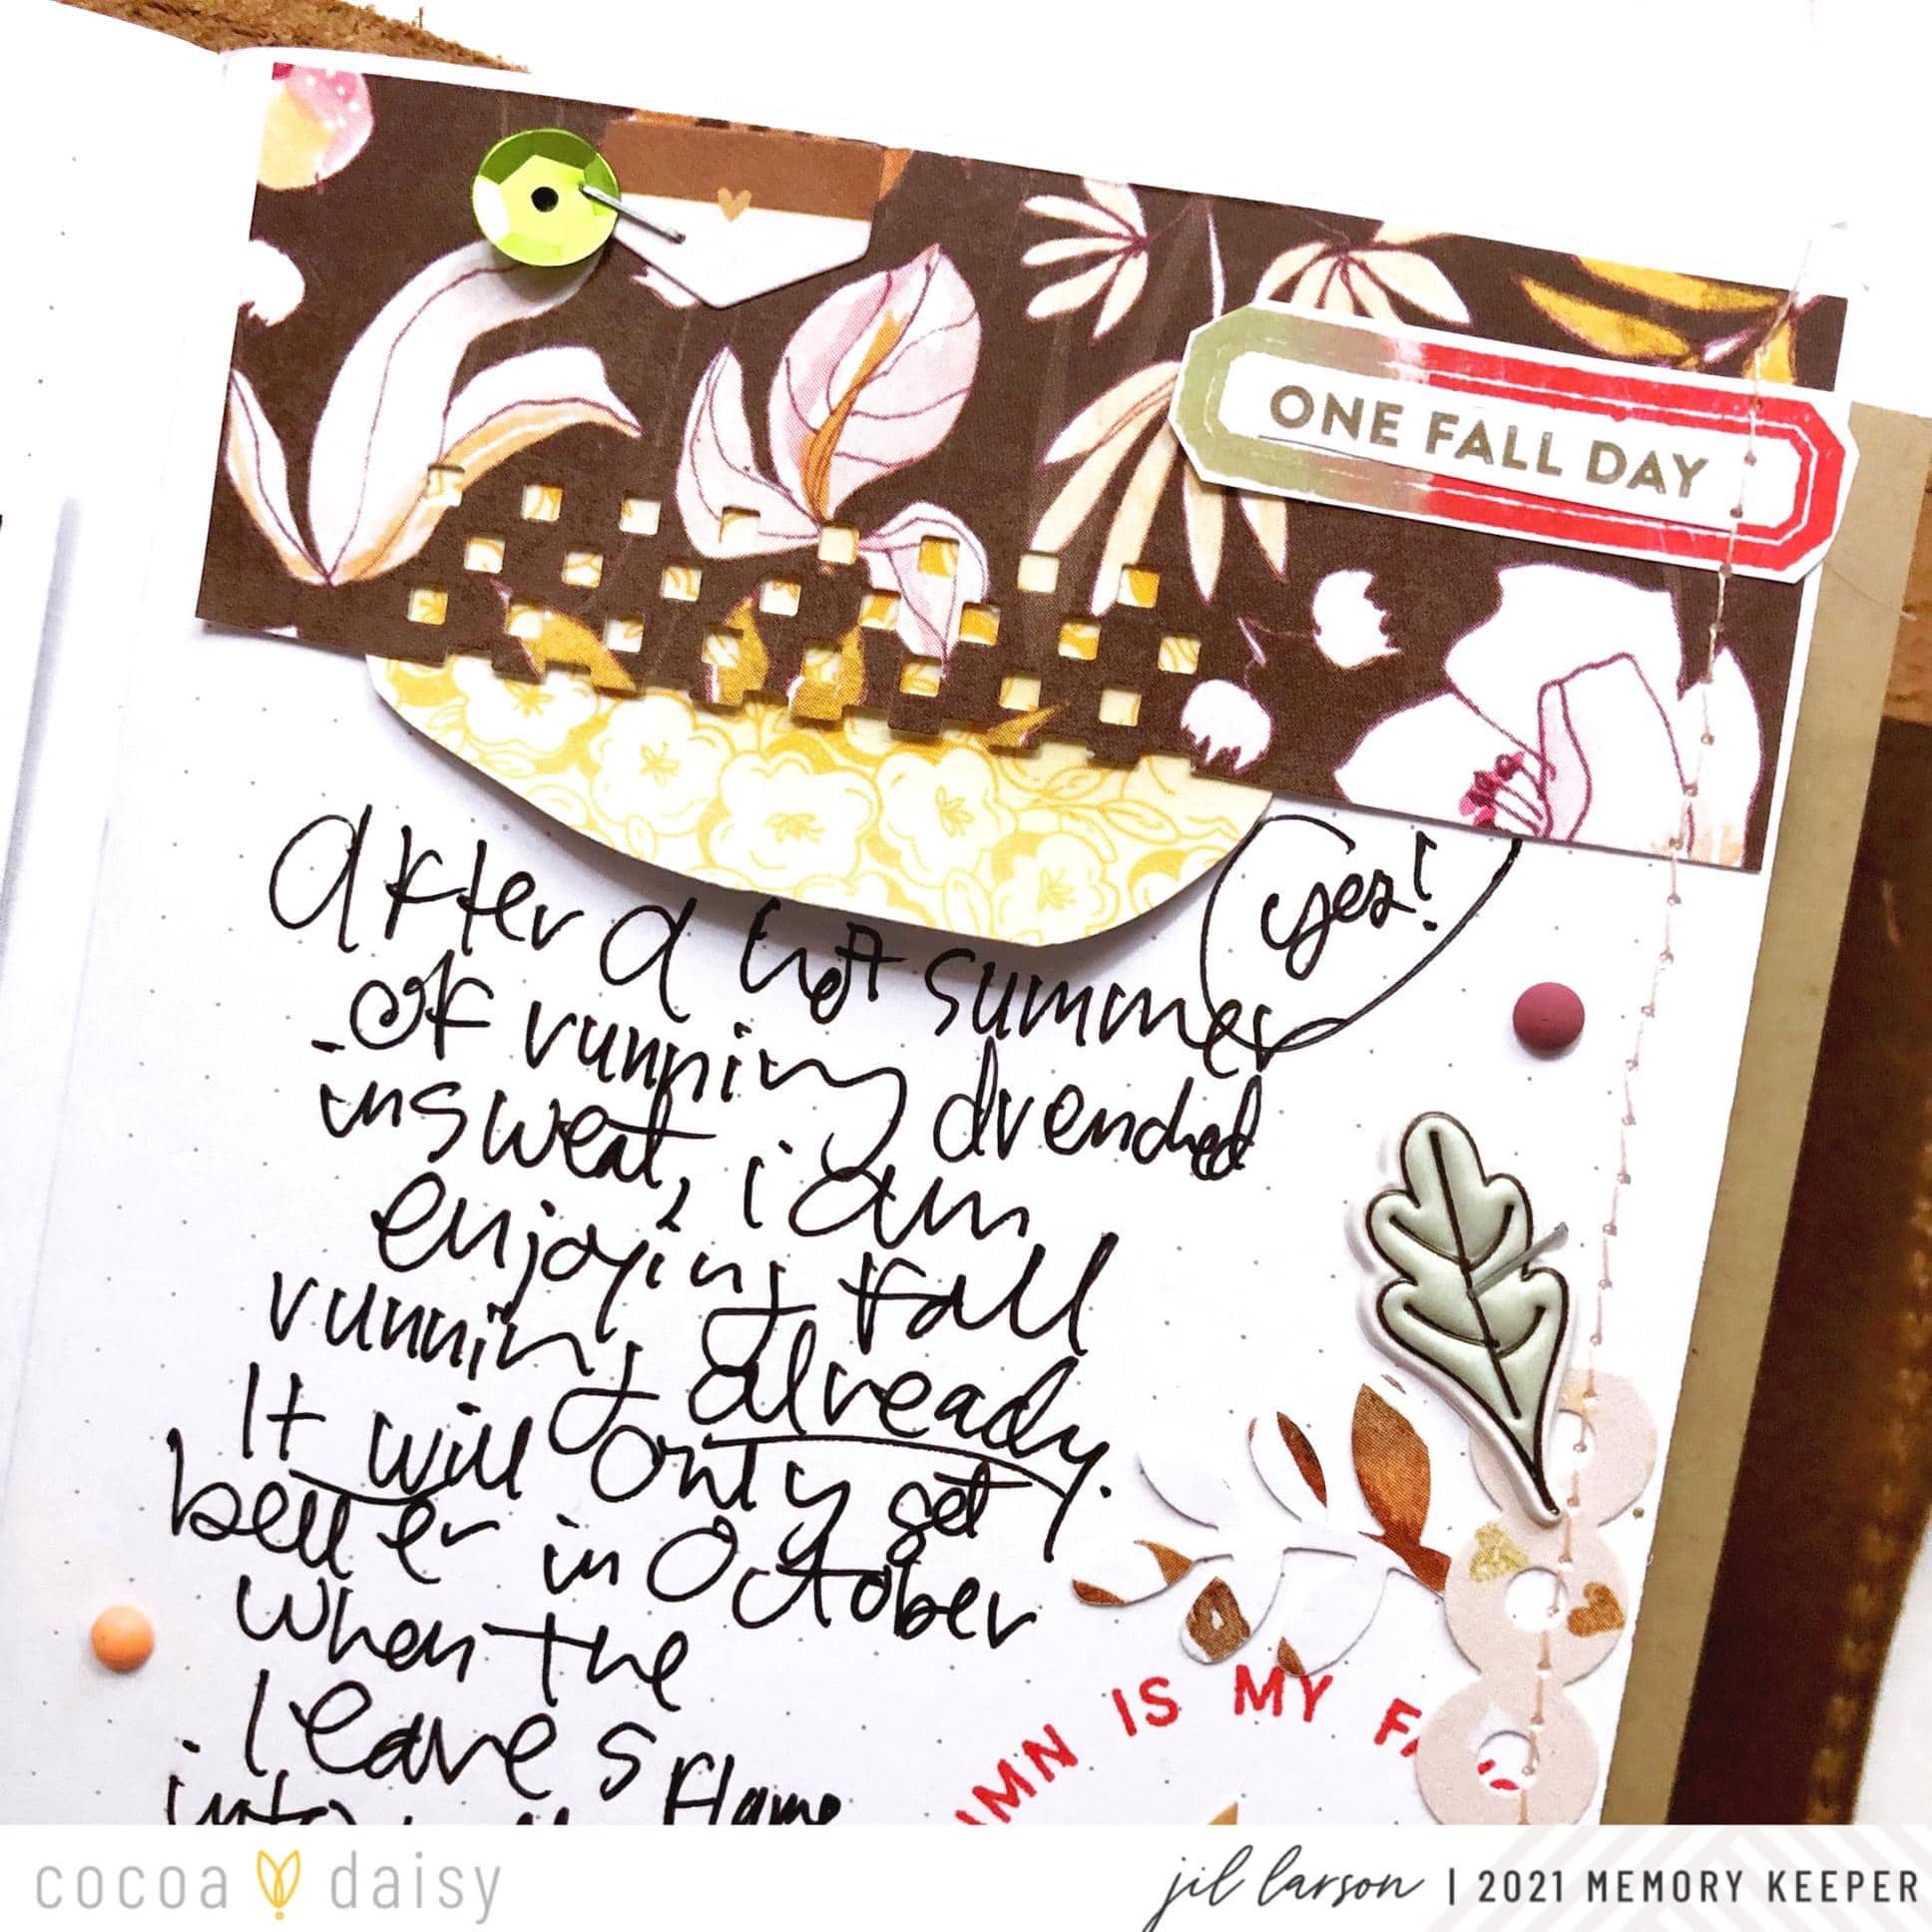 ONE FALL DAY
yes!
after a hot summer
of running drenched
in sweat, i am
enjoying fall
running already.
It will only get
better in October
when the
leaves flame
into
UMN IS MY FA
cocoa daisy
jil larson | 2021 MEMORY KEEPER